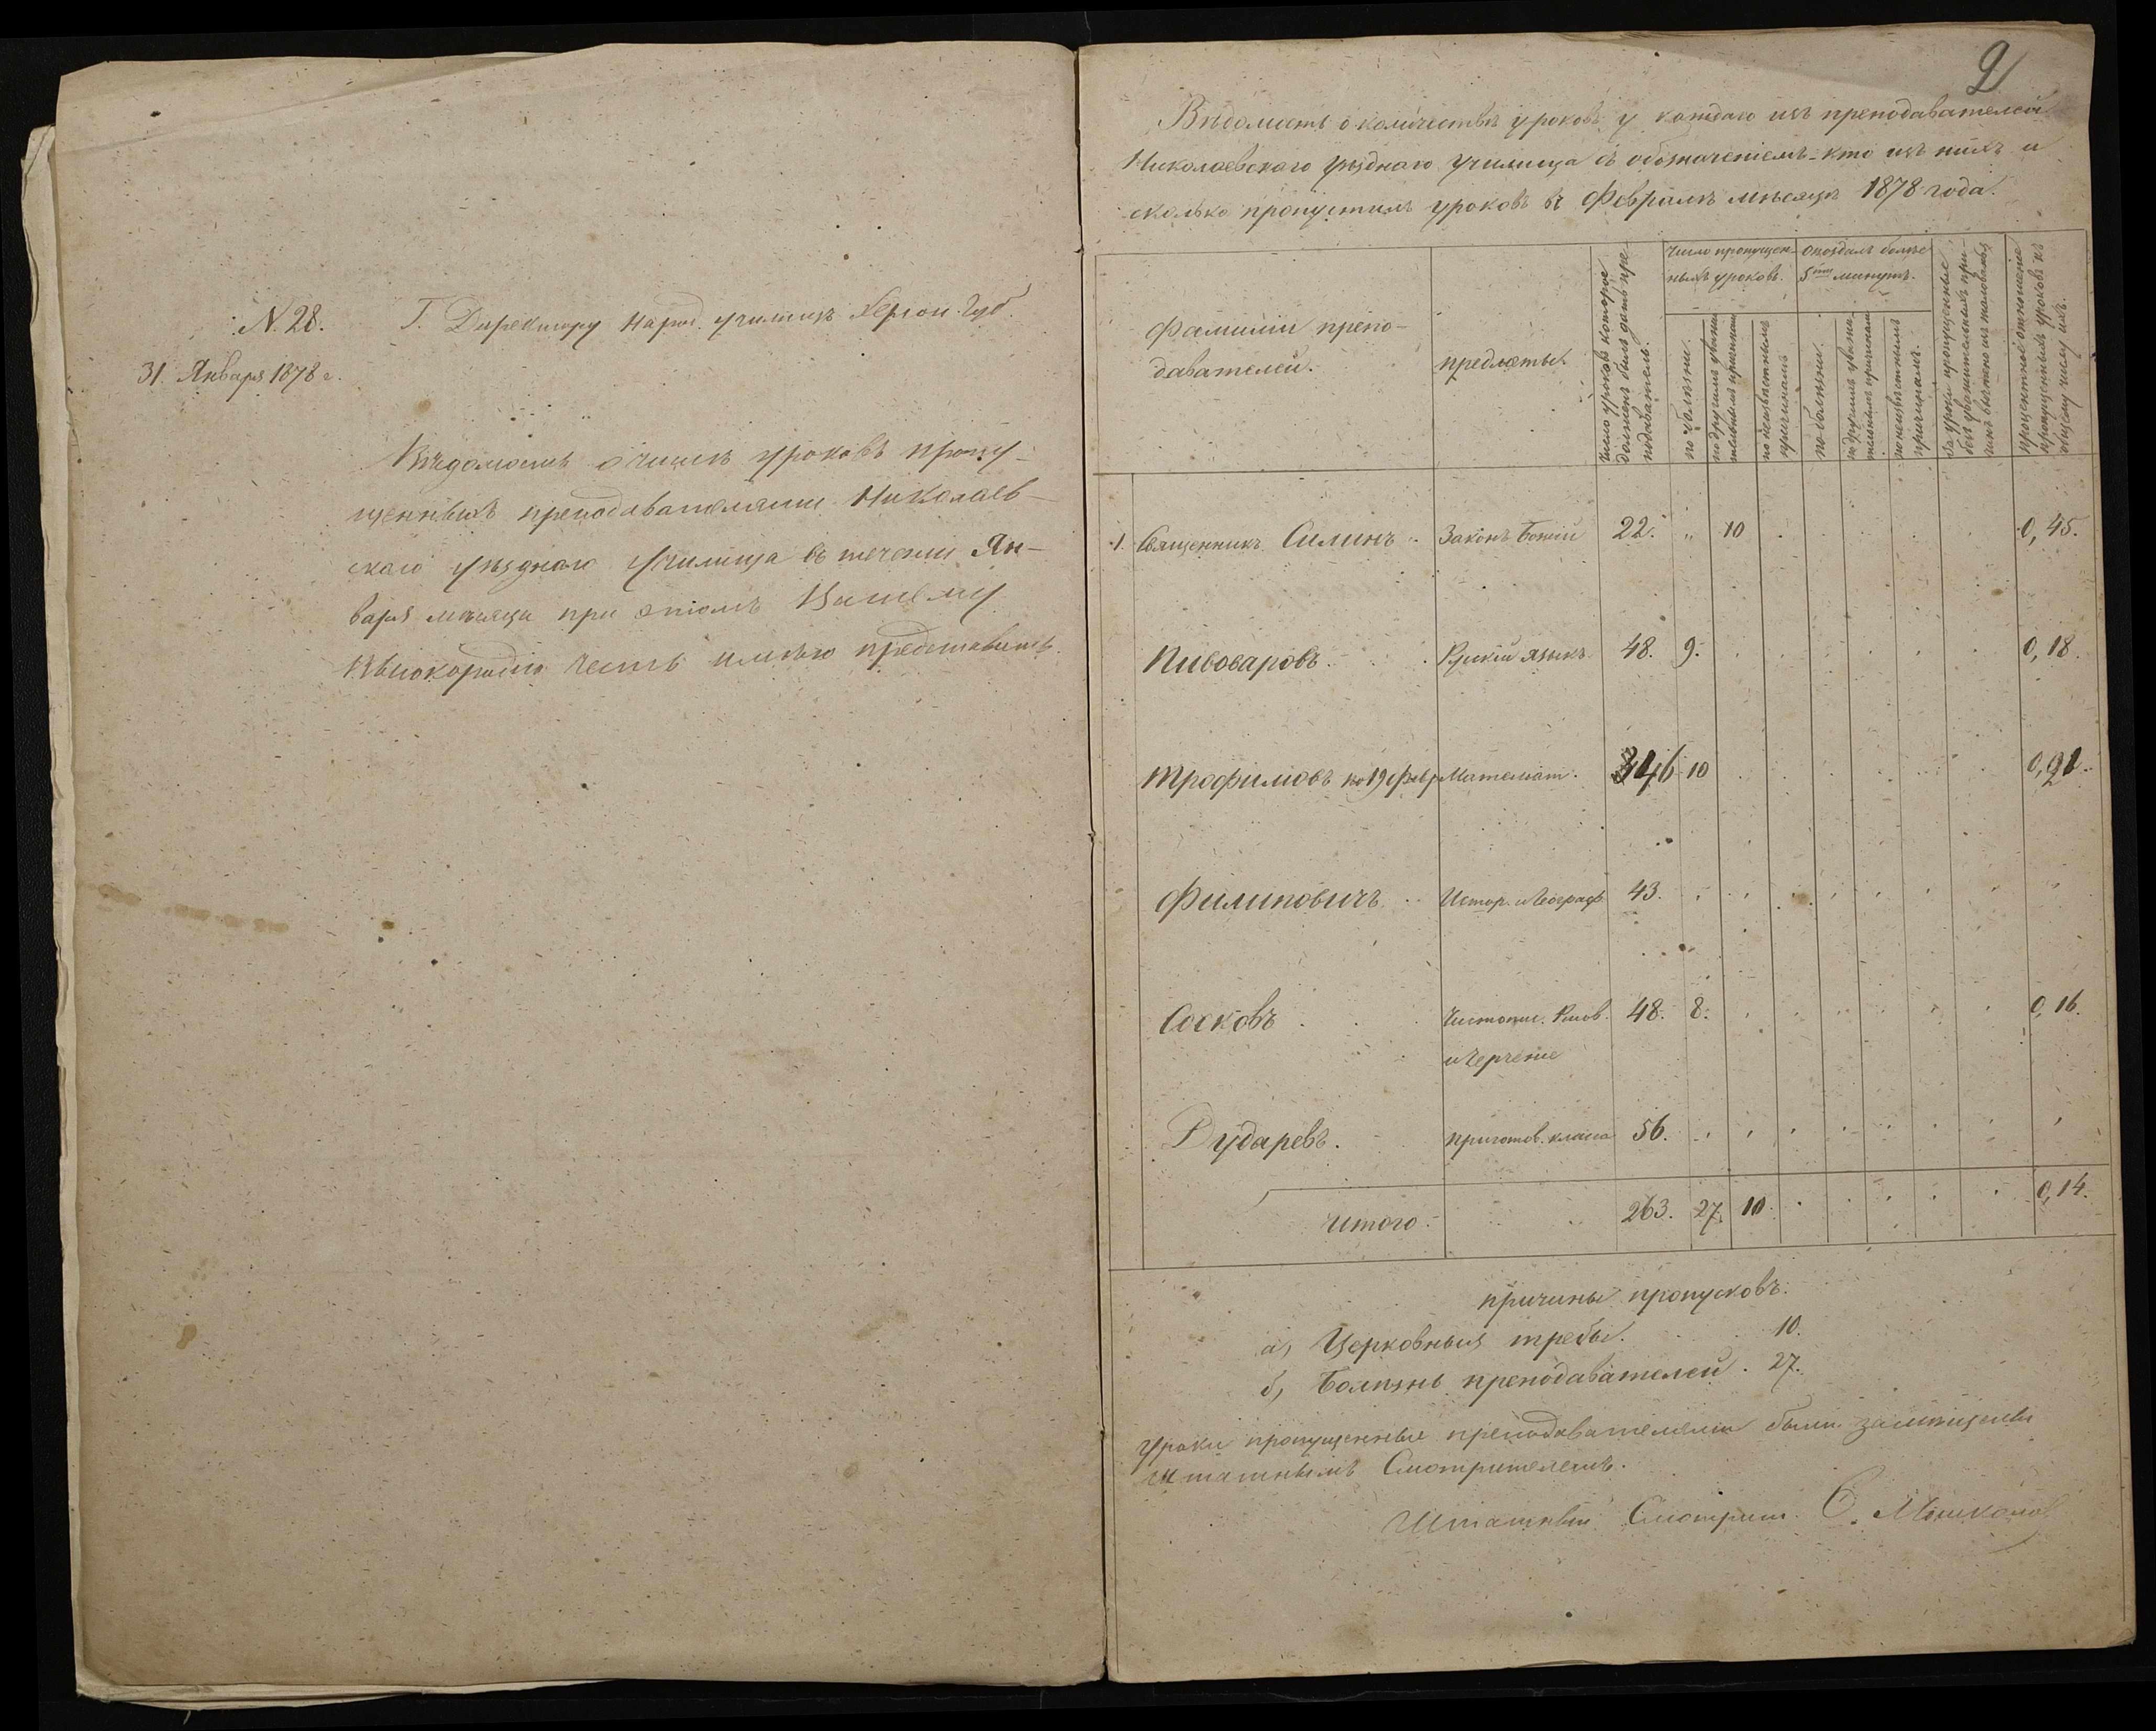 № 28.
31. Января 1878 г.
Г. Директору Народ. училищъ Херсон. Губ.
Вѣдомость о числѣ уроковъ пропу-
щенныхъ преподавателями Николаев-
скаго уѣзднаго училища въ теченіи Ян-
варя мѣсяца при этомъ Вашему
Высокородію честь имѣю представить.
2
Вѣдомость о количествѣ уроковъ у каждаго изъ преподавателей
Николаевскаго уѣзднаго училища съ обозначеніемъ-кто изъ нихъ и
сколько пропустилъ уроковъ въ Февралѣ мѣсяцѣ 1878 года.
Фамиліи препо-
давателей.
предметы.
Число уроковъ которое
долженъ былъ дать пре-
подаватель.
Число пропущен-
ныхъ уроковъ.
по болѣзни.
по другимъ уважи
тельнымъ причинамъ
по неизвѣстнымъ
причинамъ
Опоздалъ болѣе
5ти минутъ.
по болѣзни.
по другимъ уважи
тельнымъ причинам
по неизвѣстнымъ
причинамъ.
За уроки пропущенные
безъ уважительныхъ при-
чинъ вычтено изъ жалованья
процентное отношеніе
пропущенныхъ уроковъ къ
общему числу ихъ.
1. Священникъ Силинъ. Законъ Божій 22. " 10 0,45.
Пивоваровъ. Рускій языкъ 48. 9. 0,18.
Трофимовъ по 19 февр Математ. 46 10 0,21.
Филиповичъ. Истор. и Географ. 43.
Сосковъ. Чистопис. Рисов. 48. 8. 0,16.
и Черченіе
Дударевъ. приготов. класса 56.
Итого. 263. 27. 10. 0,14.
Причины пропусковъ.
а) Церковныя требы. 10.
б) Болѣзнь преподавателей. 27.
Уроки пропущенные преподавателями были замѣщены
штатнымъ Смотрителемъ.
Штатный Смотрит. С.